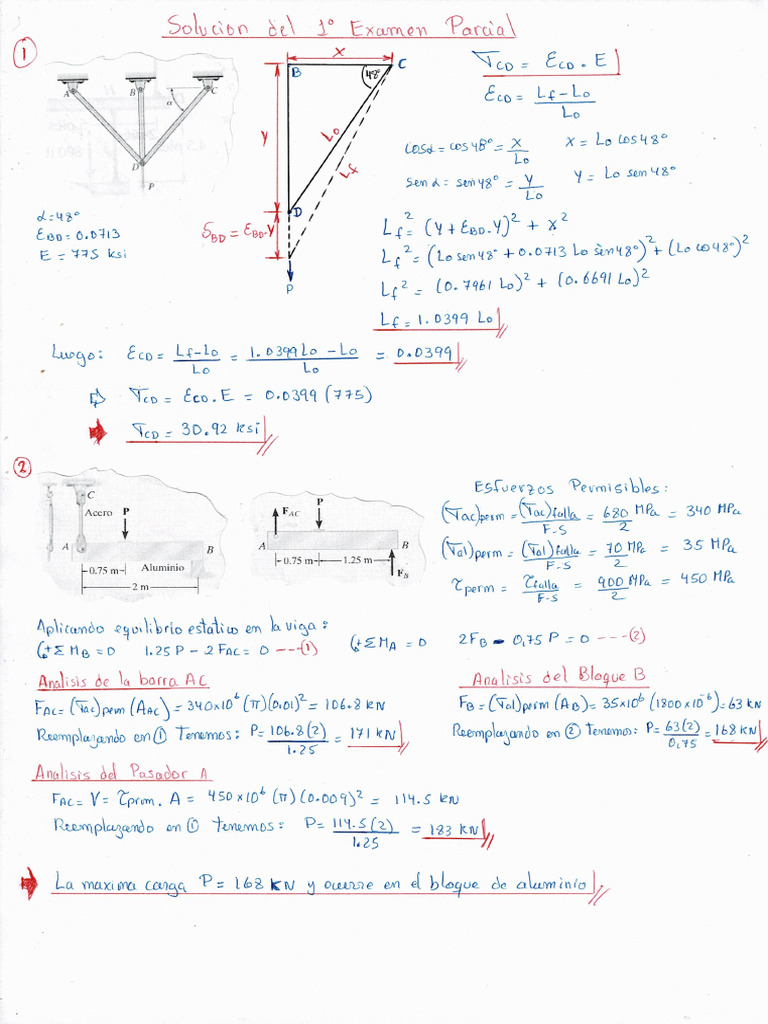 Solucion del 1° Examen Parcial
1
A
B
C
α
D
P
α=48°
ε_BD=0.0713
E = 775 ksi
X
B
C
48°
Y
Lo
Lf
D
δ_BD = ε_BD.Y
P
σ_CD = ε_CD . E
ε_CD = (Lf-Lo)/Lo
cosα = cos48° = X/Lo X = Lo cos48°
senα = sen48° = Y/Lo Y = Lo sen48°
Lf² = (Y + ε_BD.Y)² + X²
Lf² = (Lo sen48° + 0.0713 Lo sen48°)² + (Lo co48°)²
Lf² = (0.7961 Lo)² + (0.6691 Lo)²
Lf = 1.0399 Lo
Luego: ε_CD = (Lf-Lo)/Lo = (1.0399Lo - Lo)/Lo = 0.0399
⇒ σ_CD = ε_CD . E = 0.0399 (775)
σ_CD = 30.92 ksi
2
C
Acero
P
A
B
0.75 m
Aluminio
2 m
F_AC
P
A
B
0.75 m
1.25 m
F_B
Esfuerzos Permisibles:
(σac)perm = (σac)falla/F-S = 680 MPa/2 = 340 MPa
(σal)perm = (σal)falla/F-S = 70 MPa/2 = 35 MPa
τperm = τfalla/F-S = 900 MPa/2 = 450 MPa
Aplicando equilibrio estatico en la viga:
(+ΣM_B = 0 1.25 P - 2 F_AC = 0 ---(1) (+ΣM_A = 0 2F_B - 0,75 P = 0 ---(2)
Analisis de la barra AC
F_AC = (σac)perm (A_AC) = 340x10⁶ (π)(0.01)² = 106.8 kN
Reemplazando en ① Tenemos: P = 106.8(2)/1.25 = 171 kN
Analisis del Bloque B
F_B = (σal)perm (A_B) = 35x10⁶ (1800x10⁻⁶) = 63 kN
Reemplazando en ② Tenemos: P = 63(2)/0,75 = 168 kN
Analisis del Pasador A
F_AC = V = τprom. A = 450x10⁶ (π)(0.009)² = 114.5 kN
Reemplazando en ① tenemos: P = 114.5(2)/1.25 = 183 kN
La maxima carga P = 168 kN y ocurre en el bloque de aluminio.